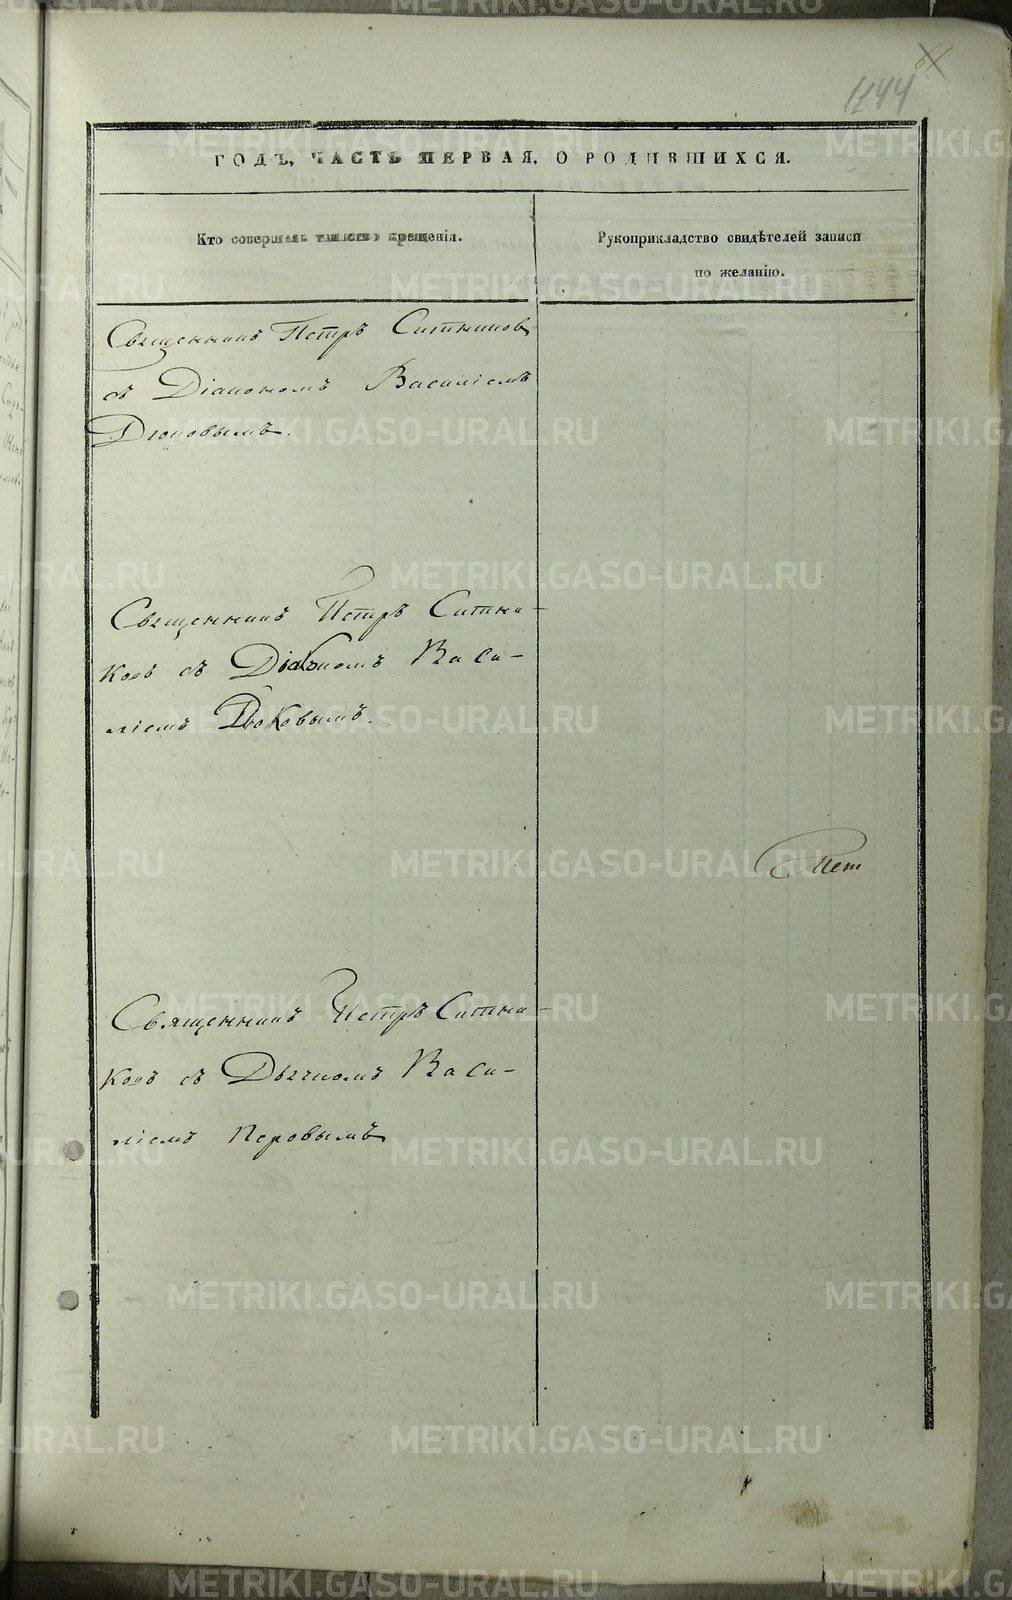 1144
ГОДЪ, ЧАСТЬ ПЕРВАЯ, О РОДИВШИХСЯ.
Кто совершалъ таинство крещенія.
Рукоприкладство свидѣтелей записи
по желанію.
Священникъ Петръ Ситников
съ Діакономъ Василіемъ
Дюковымъ.
Священникъ Петръ Ситни-
ковъ съ Діакономъ Васи-
ліемъ Дюковымъ.
Нет
Священникъ Петръ Ситни-
ковъ съ Дьячкомъ Васи-
ліемъ Перовымъ
METRIKI.GASO-URAL.RU